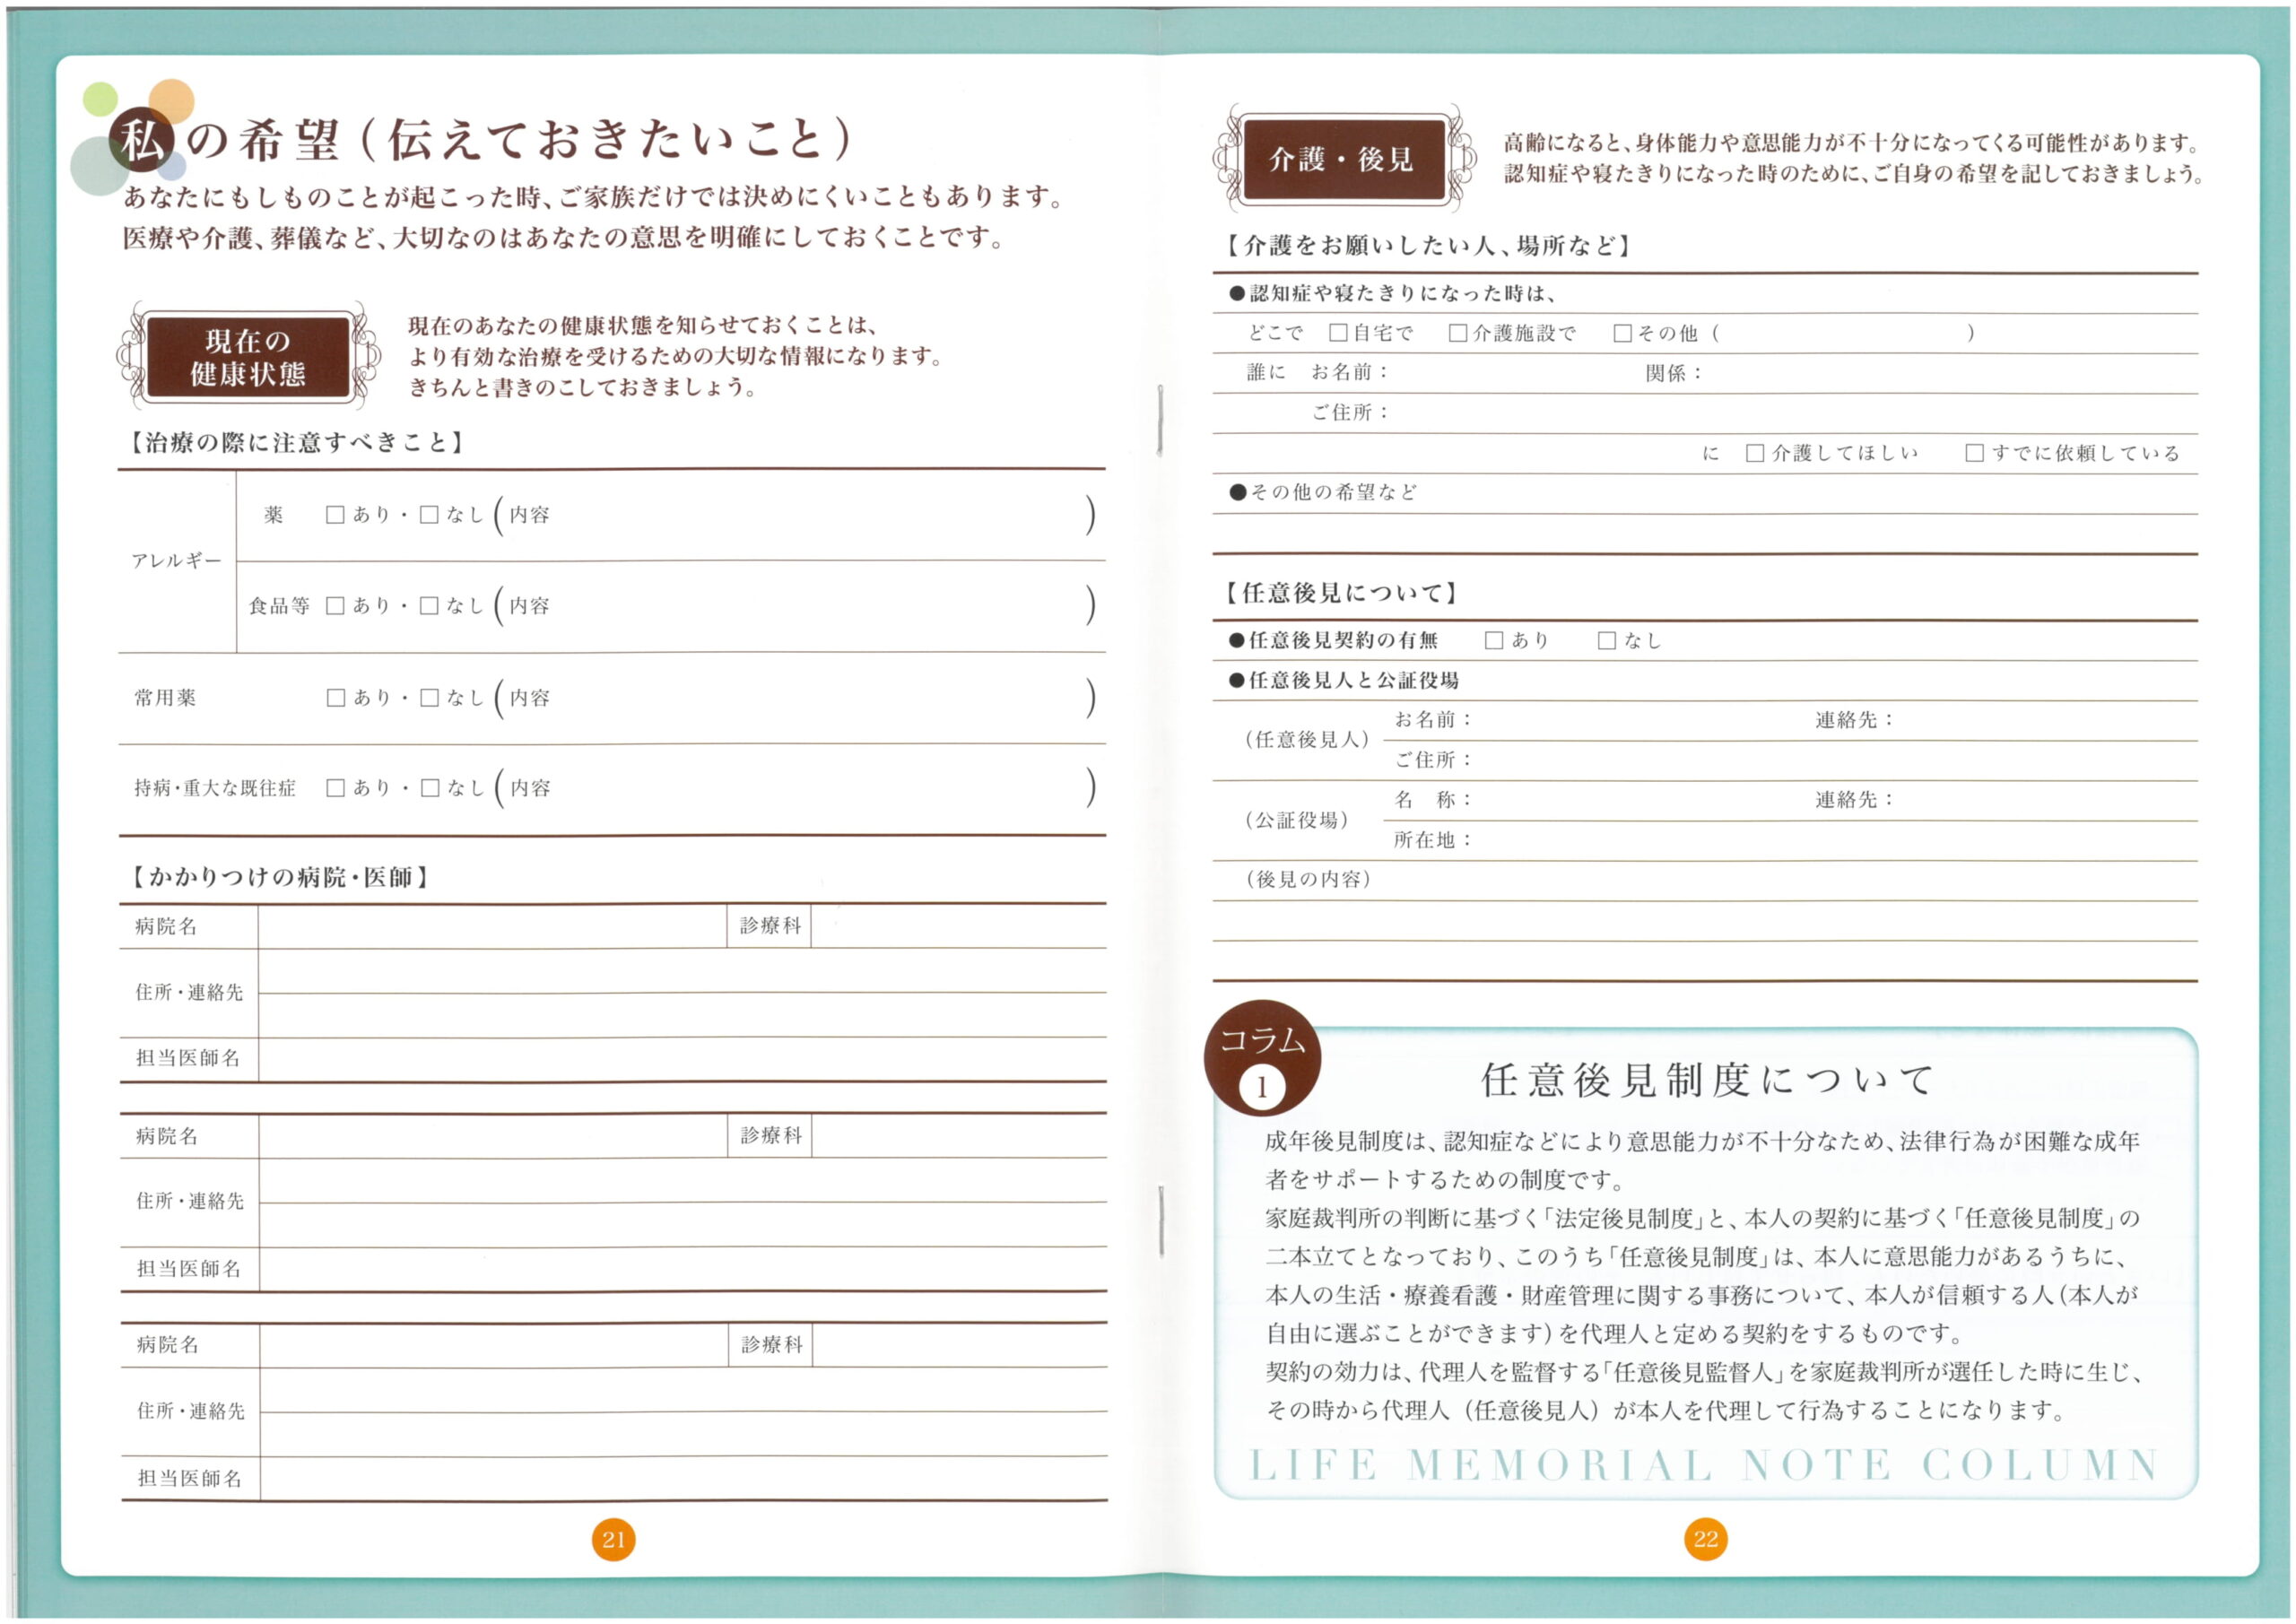 私の希望（伝えておきたいこと）
あなたにもしものことが起こった時、ご家族だけでは決めにくいこともあります。
医療や介護、葬儀など、大切なのはあなたの意思を明確にしておくことです。
現在の
健康状態
現在のあなたの健康状態を知らせておくことは、
より有効な治療を受けるための大切な情報になります。
きちんと書きのこしておきましょう。
【治療の際に注意すべきこと】
アレルギー
薬 □あり・□なし（内容 ）
食品等 □あり・□なし（内容 ）
常用薬 □あり・□なし（内容 ）
持病・重大な既往症 □あり・□なし（内容 ）
【かかりつけの病院・医師】
病院名 診療科
住所・連絡先
担当医師名
病院名 診療科
住所・連絡先
担当医師名
病院名 診療科
住所・連絡先
担当医師名
21
介護・後見
高齢になると、身体能力や意思能力が不十分になってくる可能性があります。
認知症や寝たきりになった時のために、ご自身の希望を記しておきましょう。
【介護をお願いしたい人、場所など】
●認知症や寝たきりになった時は、
どこで □自宅で □介護施設で □その他（ ）
誰に お名前： 関係：
ご住所：
に □介護してほしい □すでに依頼している
●その他の希望など
【任意後見について】
●任意後見契約の有無 □あり □なし
●任意後見人と公証役場
（任意後見人）
お名前： 連絡先：
ご住所：
（公証役場）
名　称： 連絡先：
所在地：
（後見の内容）
コラム
1
任意後見制度について
成年後見制度は、認知症などにより意思能力が不十分なため、法律行為が困難な成年
者をサポートするための制度です。
家庭裁判所の判断に基づく「法定後見制度」と、本人の契約に基づく「任意後見制度」の
二本立てとなっており、このうち「任意後見制度」は、本人に意思能力があるうちに、
本人の生活・療養看護・財産管理に関する事務について、本人が信頼する人（本人が
自由に選ぶことができます）を代理人と定める契約をするものです。
契約の効力は、代理人を監督する「任意後見監督人」を家庭裁判所が選任した時に生じ、
その時から代理人（任意後見人）が本人を代理して行為することになります。
LIFE MEMORIAL NOTE COLUMN
22